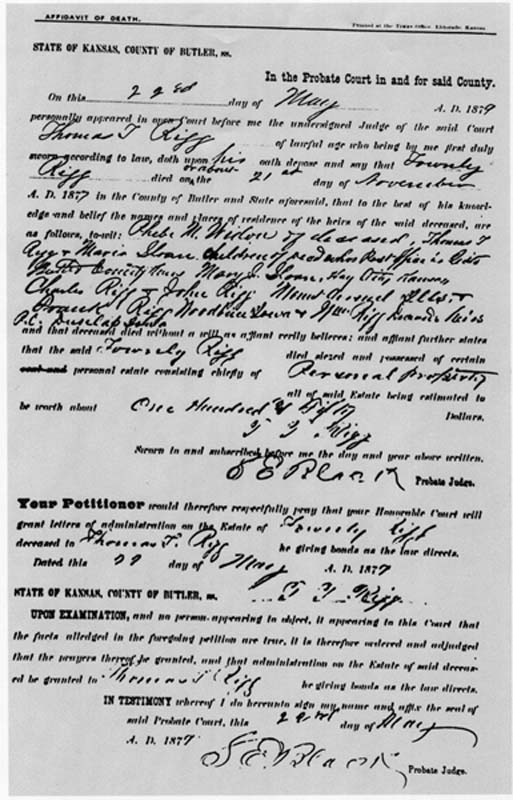 AFFIDAVIT OF DEATH.
Printed at the Times Office, Eldorado, Kansas
STATE OF KANSAS, COUNTY OF BUTLER, ss.
In the Probate Court in and for said County.
On this 22nd day of May A. D. 1879
personally appeared in open Court before me the undersigned Judge of the said Court
Thomas T Rigg of lawful age who being by me first duly
sworn according to law, doth upon his oath depose and say that Townly
Rigg died on or about the 21st day of November
A. D. 1877 in the County of Butler and State aforesaid, that to the best of his knowl-
edge and belief the names and places of residence of the heirs of the said deceased, are
as follows, to-wit: Phebe M. Widow of deceased, Thomas T
Rigg & Maria Sloan children of Post Office is
Butler County Mary J. Sloan, Hay City Kansas
Charles Rigg & John Rigg Mount Ills &
Rigg Woodbine Iowa & Wm Rigg
P.O. Dunlap Iowa
and that deceased died without a will as affiant verily believes; and affiant further states
that the said Townly Rigg died siezed and possessed of certain
real and personal estate consisting chiefly of Personal Property
all of said Estate being estimated to
be worth about One Hundred & Fifty Dollars.
T T Rigg
Sworn to and subscribed before me the day and year above written.
S E Black Probate Judge.
Your Petitioner would therefore respectfully pray that your Honorable Court will
grant letters of administration on the Estate of Townly Rigg
deceased to Thomas T. Rigg he giving bonds as the law directs.
Dated this 22 day of May A. D. 1877
T T Rigg
STATE OF KANSAS, COUNTY OF BUTLER, ss.
UPON EXAMINATION, and no person appearing to object, it appearing to this Court that
the facts alledged in the foregoing petition are true, it is therefore ordered and adjudged
that the prayers thereof be granted, and that administration on the Estate of said deceas-
ed be granted to Thomas T Rigg he giving bonds as the law directs.
IN TESTIMONY whereof I do hereunto sign my name and affix the seal of
said Probate Court, this 22nd day of May
A. D. 1877
S E Black Probate Judge.